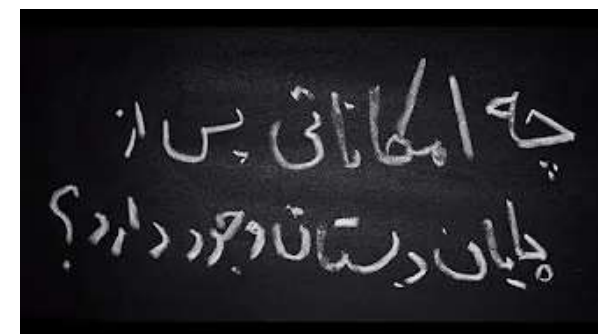 چه امکاناتی پس از
پایان دبستان وجود دارد؟